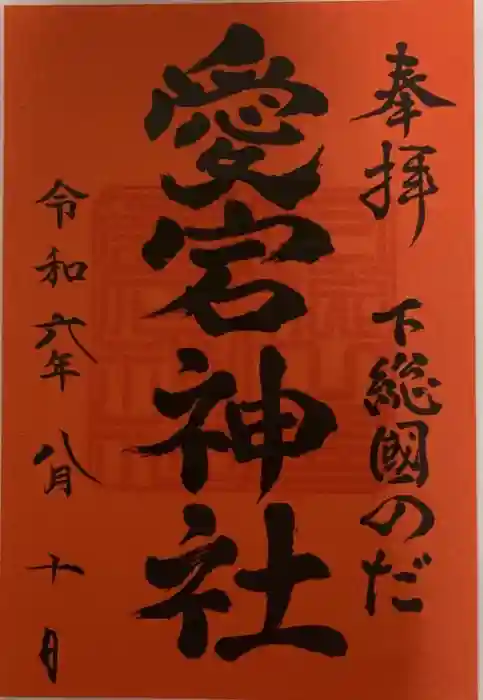 奉拝 下総國のだ
愛宕神社
令和六年 八月 十日